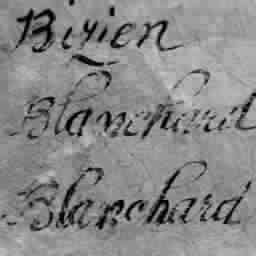 Birien
Blanchard
Blanchard